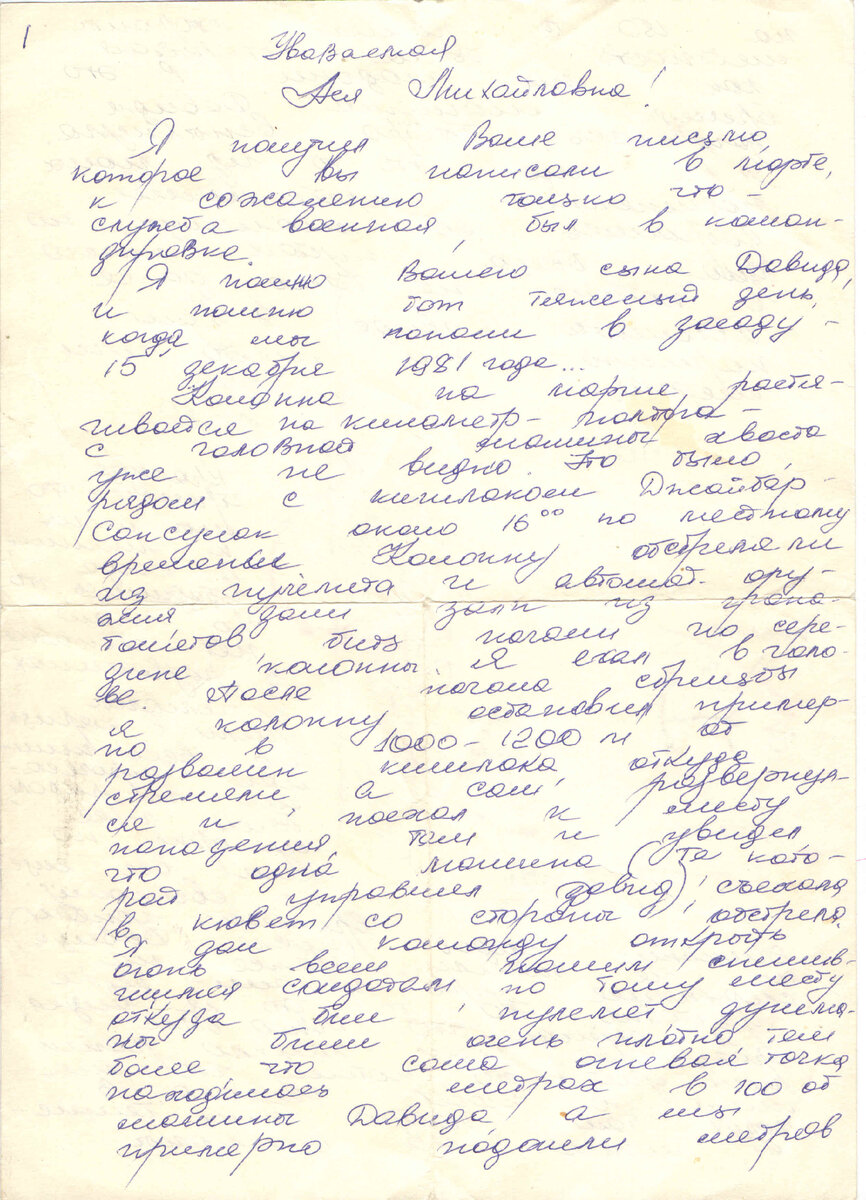 1
Уважаемая
Ася Михайловна!
Я получил Ваше письмо,
которое Вы написали в марте,
к сожалению только что –
служба военная, был в коман-
дировке.
Я помню Вашего сына Давида,
и помню тот тяжелый день,
когда мы попали в засаду –
15 декабря 1981 года...
Колонна на марше растя-
гивается на километр – полтора –
с головной машины хвоста
уже не видно. Это было,
рядом с кишлаком Джайбар-
около 16⁰⁰ по местному
времени. Колонну обстреляли
из пулемета и автомат. ору-
жия дали залп из грана-
тометов, бить начали по сере-
дине колонны. Я ехал в голо-
ве. После начала стрельбы
я колонну остановил пример-
но в 1000–1200 м от
развалин кишлака откуда
стреляли а сам, развернул-
ся и поехал к месту
нападения, там и увидел
что одна машина (та кото-
рой управлял Давид) съехала
в кювет со стороны обстрела.
Я дал команду открыть
огонь всем нашим спешив-
шимся солдатам по тому месту
откуда бил пулемет душма-
ны били очень плотно тем
более что сама огневая точка
находилась метрах в 100 от
машины Давида, а мы
примерно подошли метров